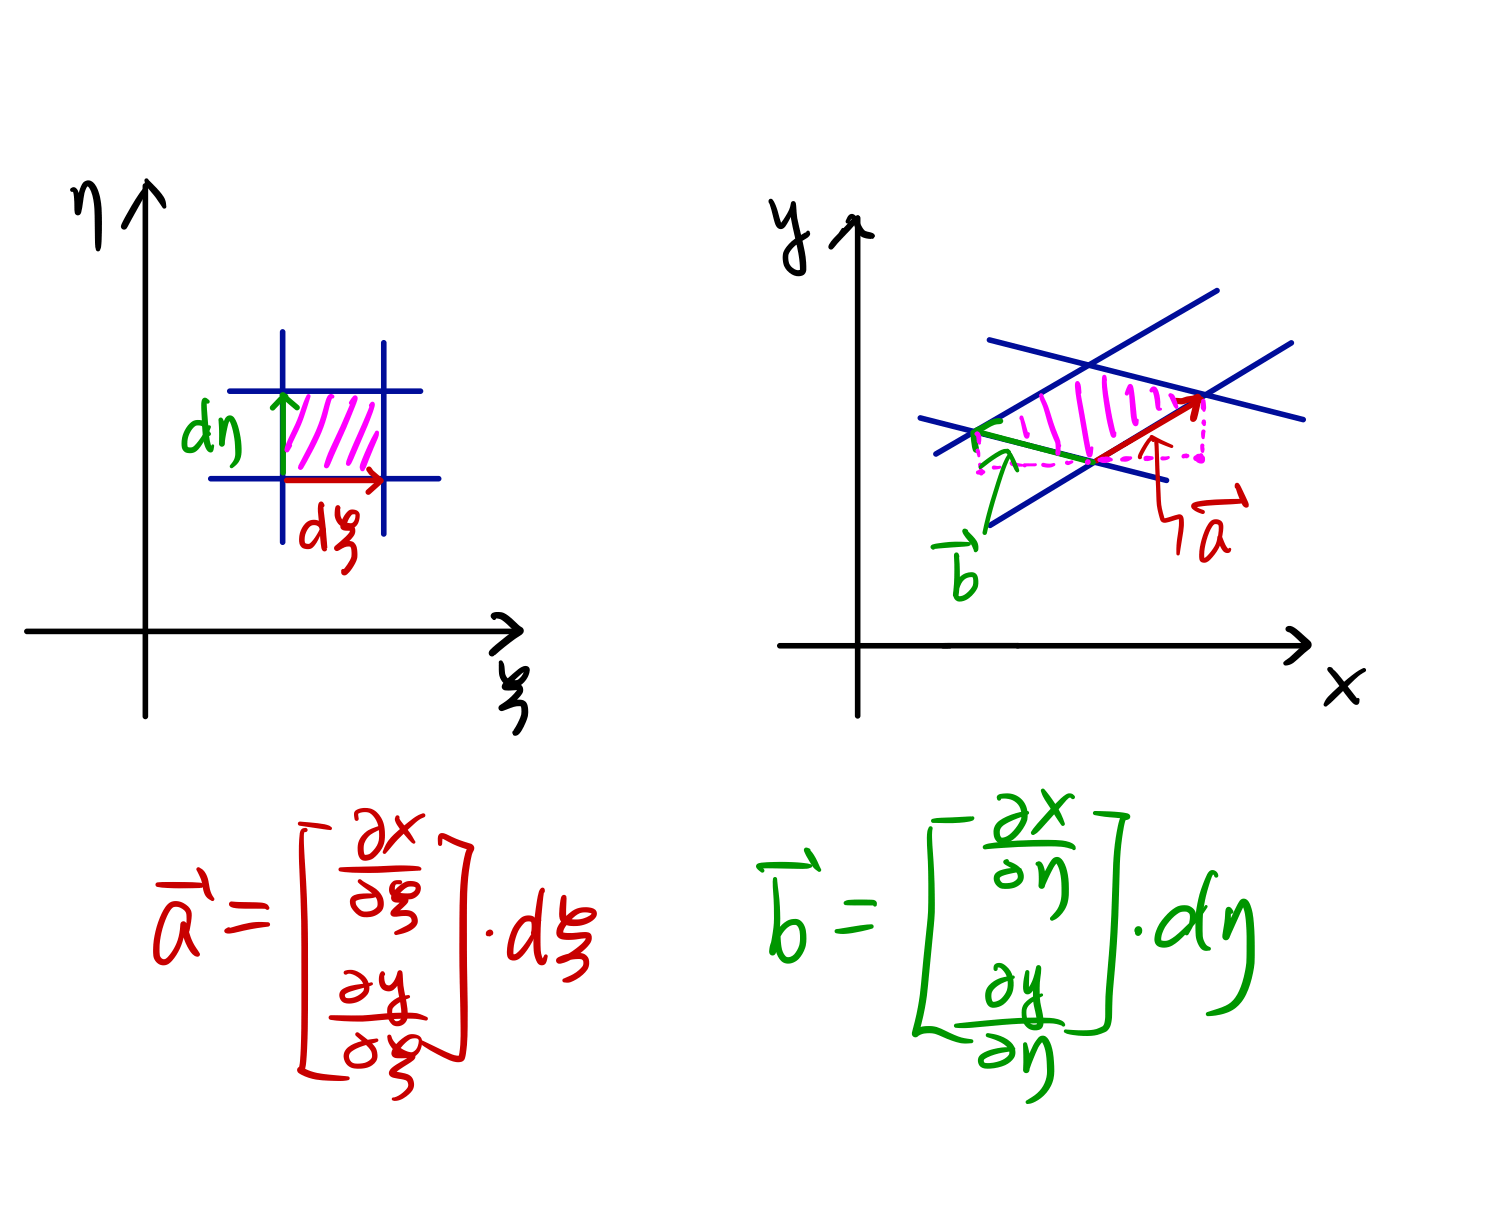 η
y
dη
dξ
b⃗
a⃗
ξ
x
a⃗ = [∂x/∂ξ ∂y/∂ξ] · dξ
b⃗ = [∂x/∂η ∂y/∂η] · dη